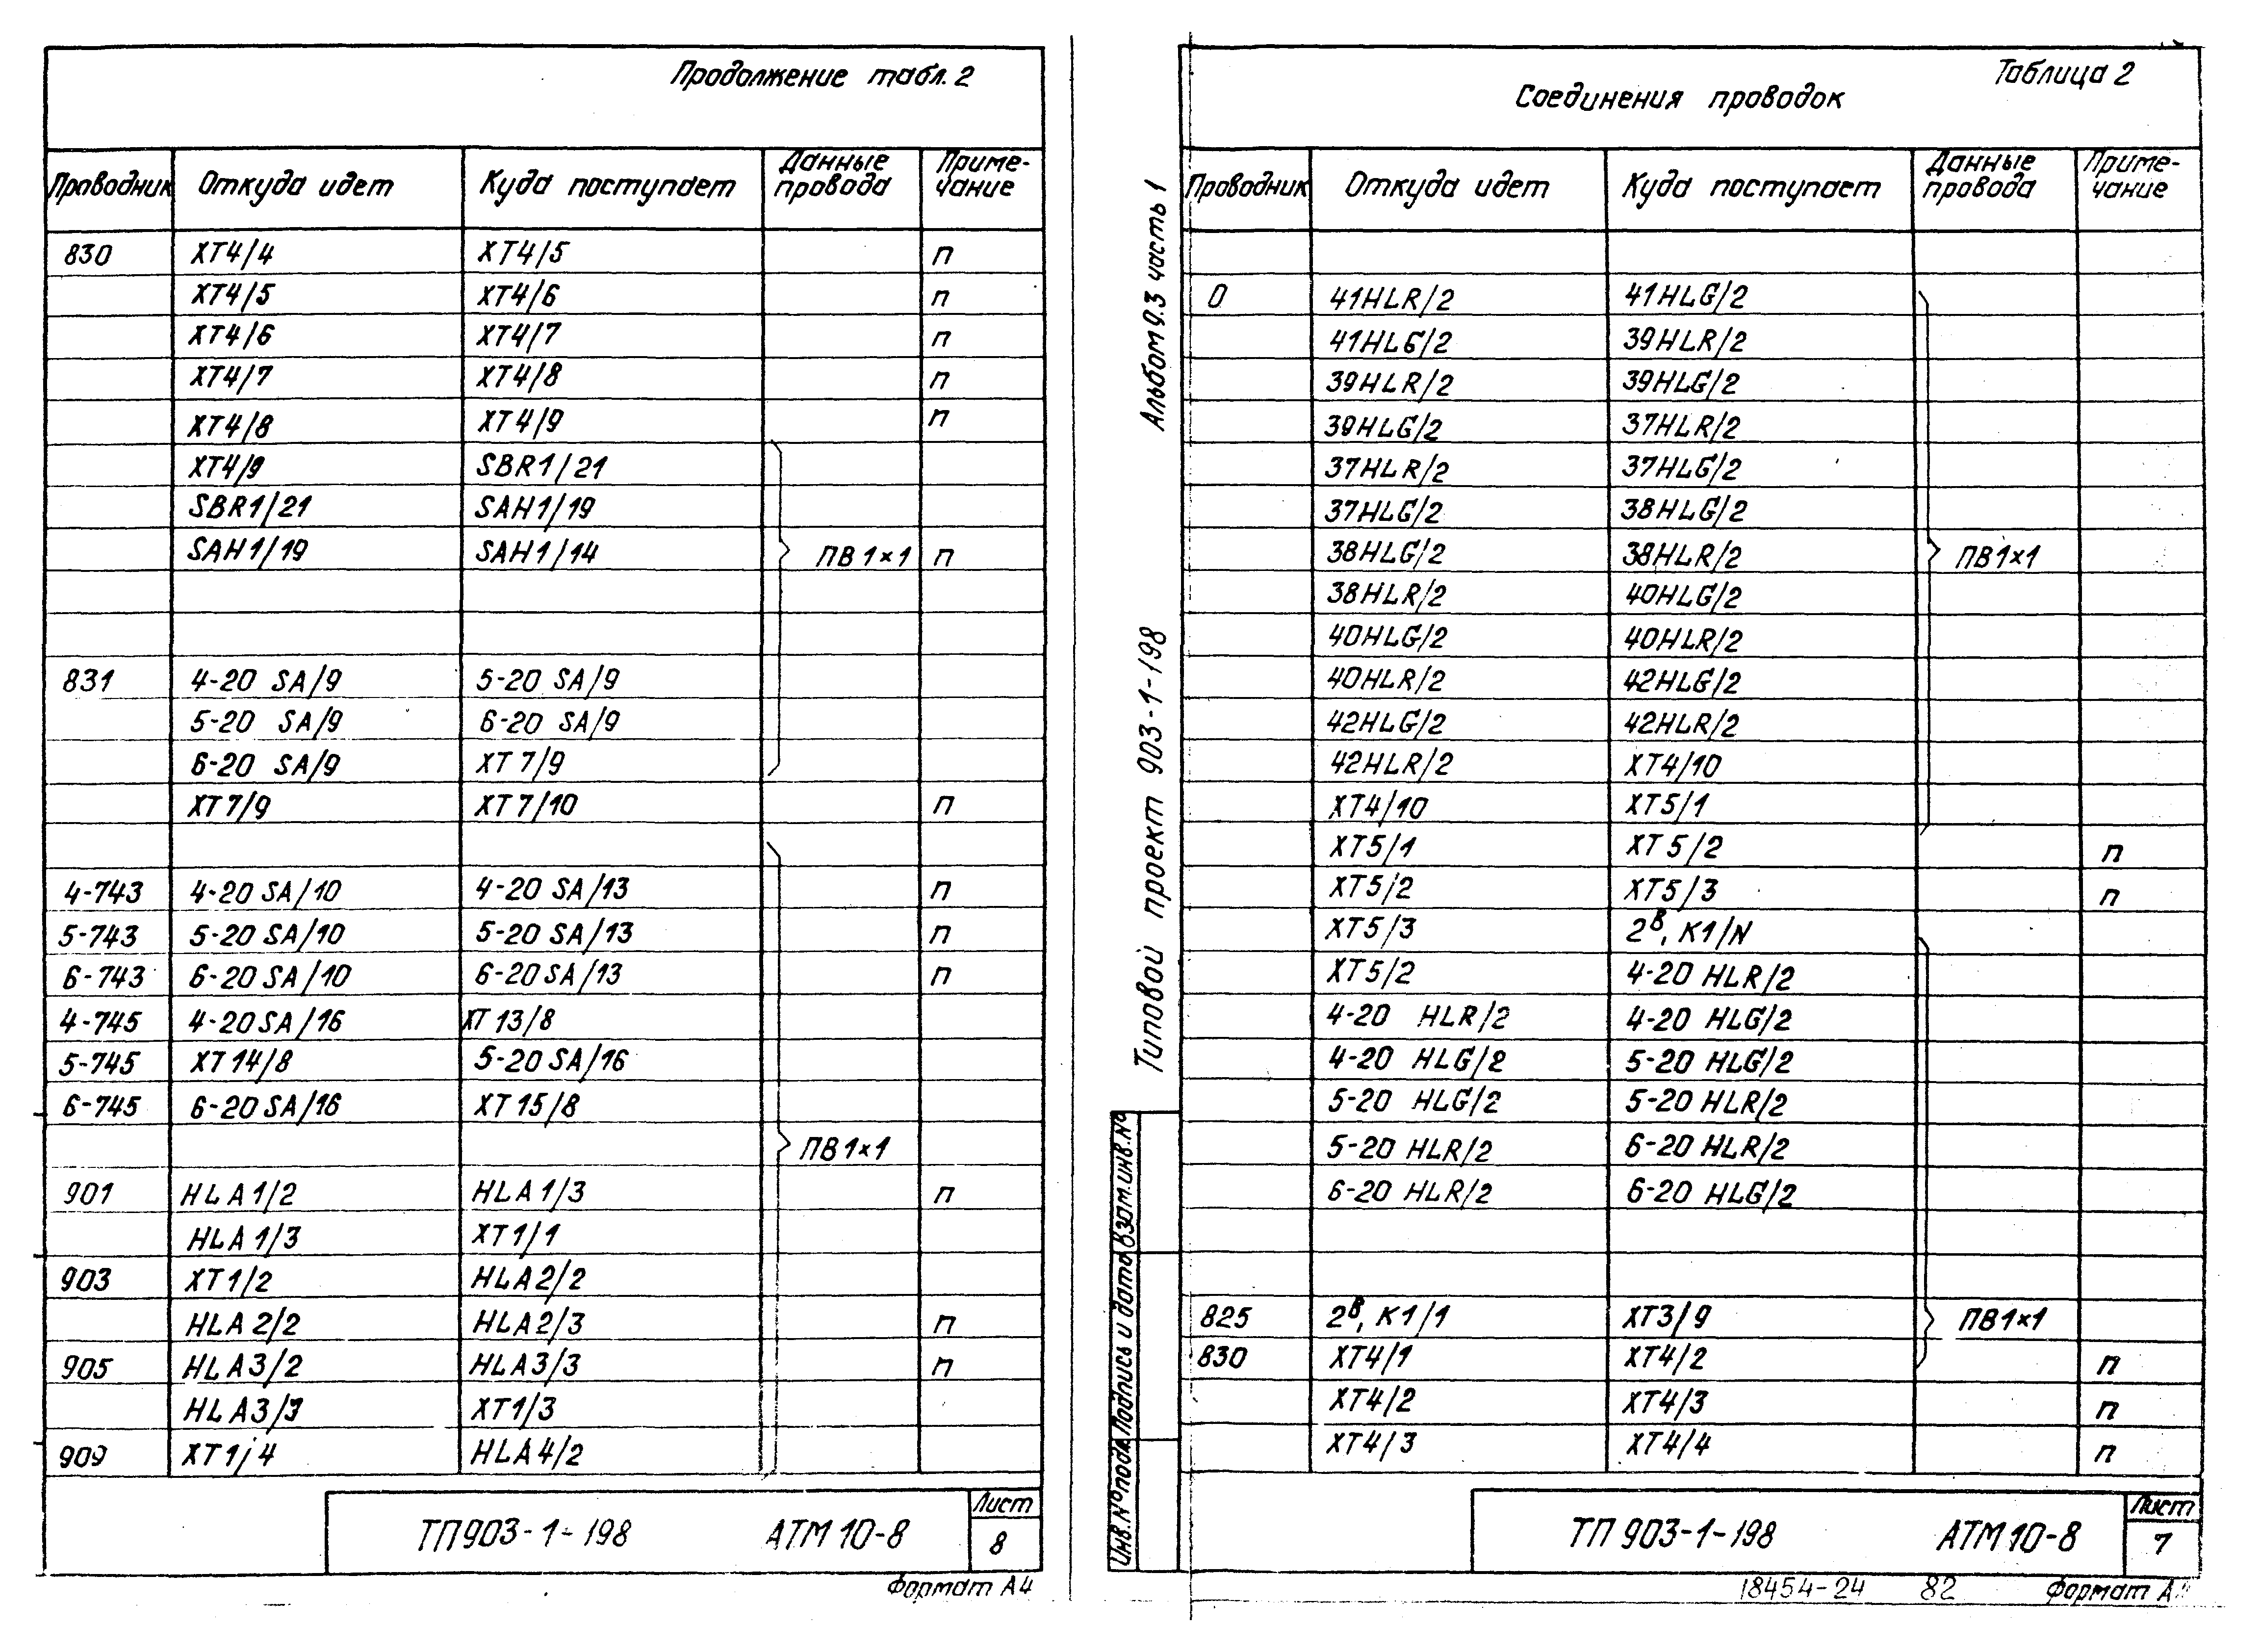 Продолжение табл. 2
Проводник Откуда идет Куда поступает Данные провода Приме-чание
830 XT4/4 XT4/5 п
XT4/5 XT4/6 п
XT4/6 XT4/7 п
XT4/7 XT4/8 п
XT4/8 XT4/9 п
XT4/9 SBR1/21
SBR1/21 SAH1/19
SAH1/19 SAH1/14 ПВ1×1 п
831 4-20 SA/9 5-20 SA/9
5-20 SA/9 6-20 SA/9
6-20 SA/9 XT7/9
XT7/9 XT7/10 п
4-743 4-20 SA/10 4-20 SA/13 п
5-743 5-20 SA/10 5-20 SA/13 п
6-743 6-20 SA/10 6-20 SA/13 п
4-745 4-20 SA/16 XT13/8
5-745 XT14/8 5-20 SA/16
6-745 6-20 SA/16 XT15/8
ПВ1×1
901 HLA1/2 HLA1/3 п
HLA1/3 XT1/1
903 XT1/2 HLA2/2
HLA2/2 HLA2/3 п
905 HLA3/2 HLA3/3 п
HLA3/3 XT1/3
909 XT1/4 HLA4/2
ТП903-1-198 АТМ10-8 Лист 8
Формат А4
Альбом 9.3 часть 1
Типовой проект 903-1-198
Взам.инв.№
Подпись и дата
Инв.№подл
Таблица 2
Соединения проводок
Проводник Откуда идет Куда поступает Данные провода Приме-чание
0 41HLR/2 41HLG/2
41HLG/2 39HLR/2
39HLR/2 39HLG/2
39HLG/2 37HLR/2
37HLR/2 37HLG/2
37HLG/2 38HLG/2
38HLG/2 38HLR/2 ПВ1×1
38HLR/2 40HLG/2
40HLG/2 40HLR/2
40HLR/2 42HLG/2
42HLG/2 42HLR/2
42HLR/2 XT4/10
XT4/10 XT5/1
XT5/1 XT5/2 п
XT5/2 XT5/3 п
XT5/3 2ᴮ, K1/N
XT5/2 4-20 HLR/2
4-20 HLR/2 4-20 HLG/2
4-20 HLG/2 5-20 HLG/2
5-20 HLG/2 5-20 HLR/2
5-20 HLR/2 6-20 HLR/2
6-20 HLR/2 6-20 HLG/2
825 2ᴮ, K1/1 XT3/9 ПВ1×1
830 XT4/1 XT4/2 п
XT4/2 XT4/3 п
XT4/3 XT4/4 п
ТП903-1-198 АТМ10-8 Лист 7
18454-24 82 Формат А4